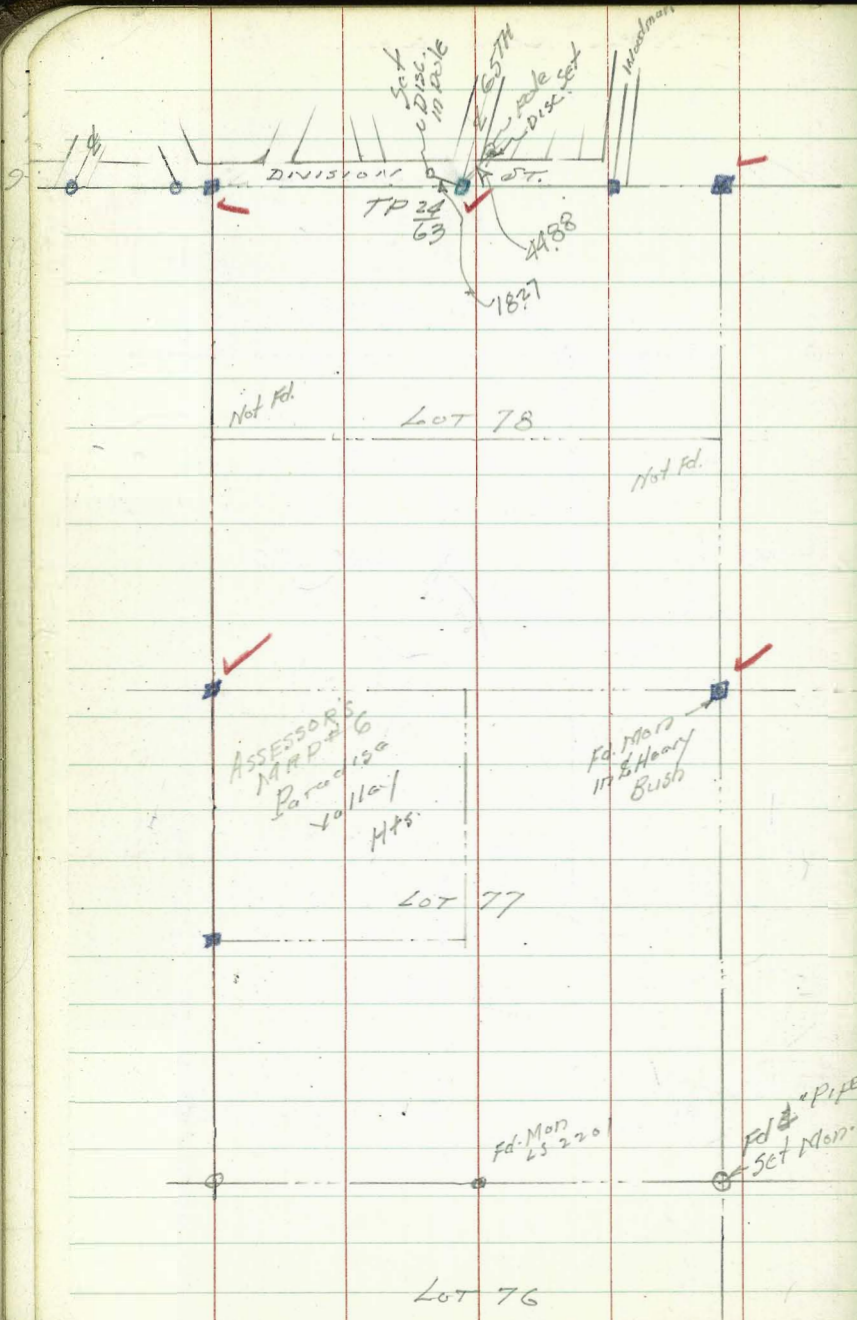 Set
Disc.
in Pole
65TH
Pole
Disc. Set
Woodman
DIVISION ST.
TP 24
63
44.88
18.27
Not Fd.
LOT 78
Not Fd.
ASSESSOR'S
MAP # 6
Paradise
Valley
Hts.
Fd. Mon
in Heavy
Bush
LOT 77
Fd. Mon
LS 2201
Fd "Pipe
Set Mon.
LOT 76